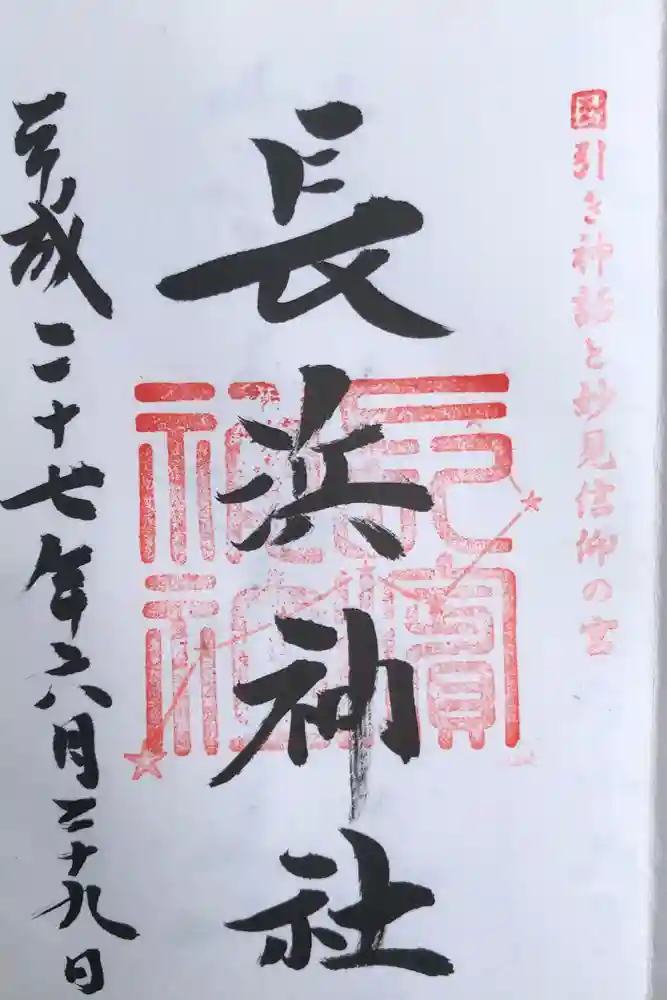 国引き神話と妙見信仰の宮
長浜神社
長濱神社
平成二十七年六月二十九日